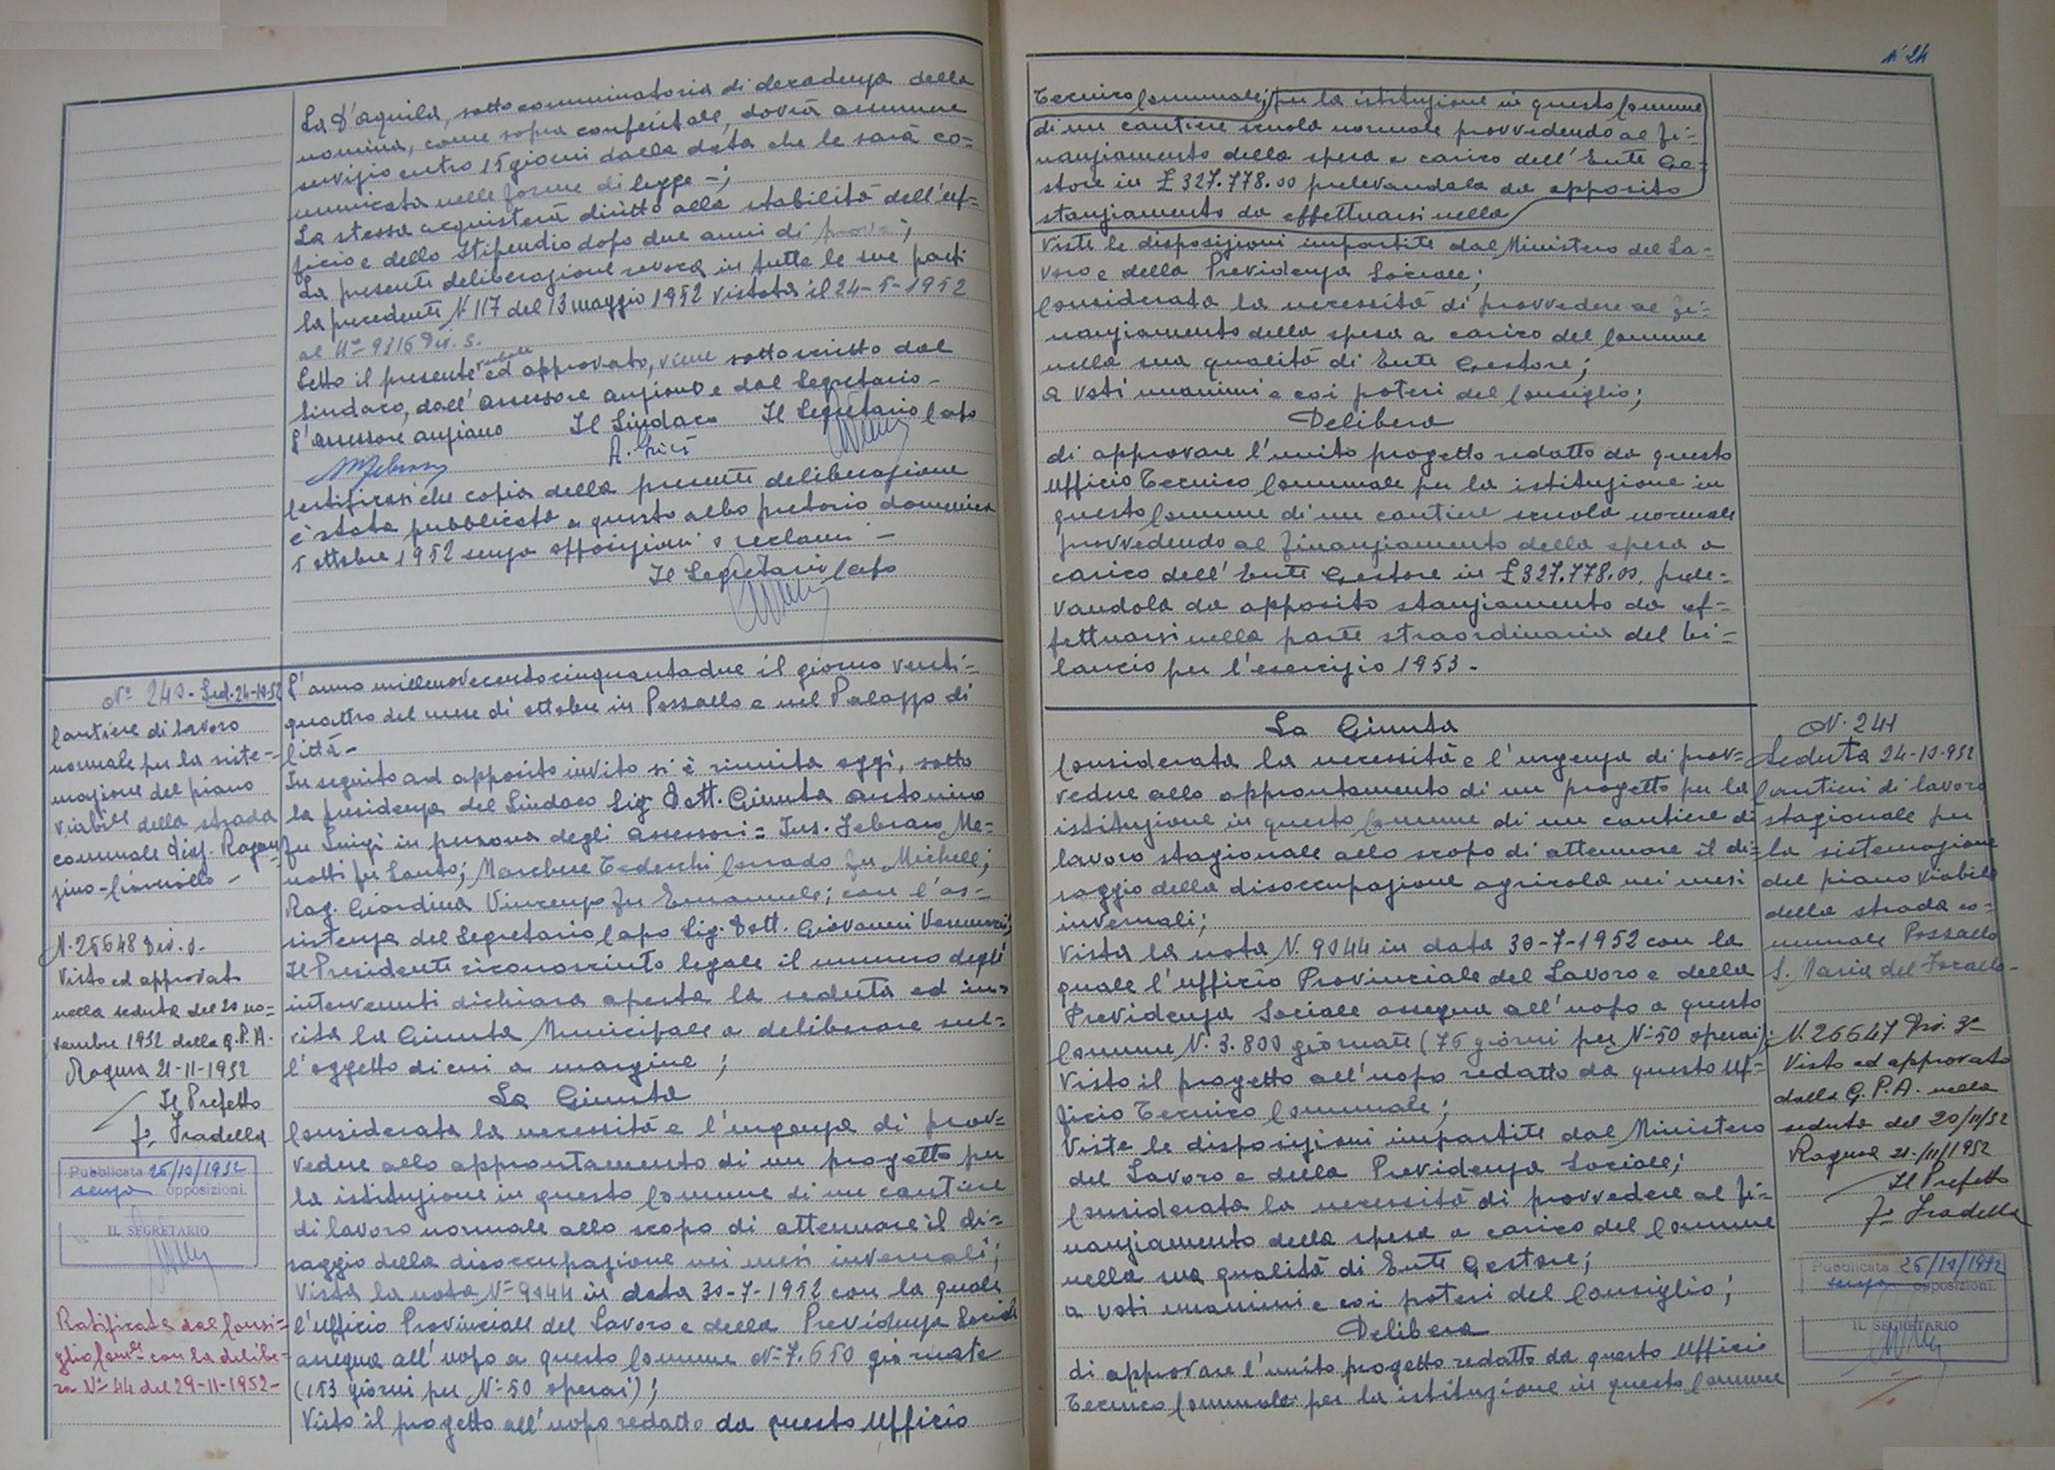 La D'Aquila, sotto comminatoria di decadenza della
nomina, come sopra conferitale, dovrà assumere
servizio entro 15 giorni dalla data che le sarà co=
municata nelle forme di legge -;
La stessa acquisterà diritto alla stabilità dell'uf=
ficio e dello stipendio dopo due anni di prova;
La presente deliberazione revoca in tutte le sue parti
la precedente N 117 del 13 maggio 1952 vistata il 24-5-1952
al N° 9816 Div. S.
Letto il presente verbale ed approvato, viene sottoscritto dal
Sindaco, dall'Assessore anziano e dal Segretario -
L'Assessore anziano Il Sindaco Il Segretario Capo
Certificasi che copia della presente deliberazione
è stata pubblicata a questo albo pretorio domenica
5 ottobre 1952 senza opposizioni o reclami -
Il Segretario Capo
N° 240 - Sed. 24-10-52
Cantiere di lavoro
normale per la siste=
mazione del piano
viabile della strada
comunale
N. 25648 Div. S.
Visto ed approvato
nella seduta del 20 no=
vembre 1952 della G.P.A.
Ragusa 21-11-1952
Il Prefetto
F° Fradella
Pubblicata 26/10/1952
senza opposizioni.
IL SEGRETARIO
Ratificata dal Consi=
glio Com.le con la delibe=
ra N° 44 del 29-11-1952-
L'anno millenovecentocinquantadue il giorno venti=
quattro del mese di ottobre in Pozzallo e nel Palazzo di
Città -
In seguito ad apposito invito si è riunita oggi, sotto
la presidenza del Sindaco Sig. Dott. Giunta Antonino
fu Luigi in persona degli assessori = Ins. Febraro Me=
notti fu Santo; Marchese Tedeschi Corrado fu Michele;
Rag. Giardina Vincenzo fu Emanuele; con l'as=
sistenza del Segretario Capo Sig. Dott. Giovanni Vennuni;
Il Presidente riconosciuto legale il numero degli
intervenuti dichiara aperta la seduta ed in=
vita la Giunta Municipale a deliberare sul=
l'oggetto di cui a margine;
La Giunta
Considerata la necessità e l'urgenza di prov=
vedere allo approntamento di un progetto per
la istituzione in questo Comune di un cantiere
di lavoro normale allo scopo di attenuare il di=
saggio della disoccupazione nei mesi invernali;
Vista la nota N° 9044 in data 30-7-1952 con la quale
l'ufficio Provinciale del Lavoro e della Previdenza Sociale
assegna all'uopo a questo Comune N° 7.650 giornate
(153 giorni per N° 50 operai);
Visto il progetto all'uopo redatto da questo Ufficio
N° 24
Tecnico Comunale; per la istituzione in questo Comune
di un cantiere scuola normale provvedendo al fi=
nanziamento della spesa a carico dell'Ente Ge=
store in £ 327.778.00 prelevandola da apposito
stanziamento da effettuarsi nella
Viste le disposizioni impartite dal Ministero del La=
voro e della Previdenza Sociale;
Considerata la necessità di provvedere al fi=
nanziamento della spesa a carico del Comune
nella sua qualità di Ente Gestore;
a voti unanimi e coi poteri del Consiglio;
Delibera
di approvare l'unito progetto redatto da questo
Ufficio Tecnico Comunale per la istituzione in
questo Comune di un cantiere scuola normale
provvedendo al finanziamento della spesa a
carico dell'Ente Gestore in £ 327.778.00, prele=
vandola da apposito stanziamento da ef=
fettuarsi nella parte straordinaria del bi=
lancio per l'esercizio 1953 -
La Giunta
Considerata la necessità e l'urgenza di prov=
vedere allo approntamento di un progetto per la
istituzione in questo Comune di un cantiere di
lavoro stagionale allo scopo di attenuare il di=
saggio della disoccupazione agricola nei mesi
invernali;
Vista la nota N. 9044 in data 30-7-1952 con la
quale l'ufficio Provinciale del Lavoro e della
Previdenza Sociale assegna all'uopo a questo
Comune N. 3.800 giornate (76 giorni per N° 50 operai);
Visto il progetto all'uopo redatto da questo Uf=
ficio Tecnico Comunale;
Viste le disposizioni impartite dal Ministero
del Lavoro e della Previdenza Sociale;
Considerata la necessità di provvedere al fi=
nanziamento della spesa a carico del Comune
nella sua qualità di Ente Gestore;
a voti unanimi e coi poteri del Consiglio;
Delibera
di approvare l'unito progetto redatto da questo Ufficio
Tecnico Comunale per la istituzione in questo Comune
N. 241
Seduta 24-10-952
Cantieri di lavoro
stagionale per
la sistemazione
del piano viabile
della strada co=
munale Pozzallo
S. Maria del Focallo-
N. 26647 Div. 3a
Visto ed approvato
dalla G.P.A. nella
seduta del 20/11/52
Ragusa 21-/11/1952
Il Prefetto
F° Fradella
Pubblicata 26/10/1952
senza opposizioni.
IL SEGRETARIO